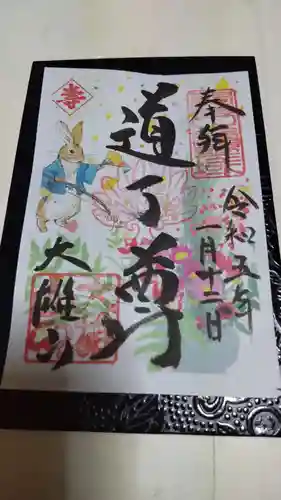 奉拝
令和五年
一月十二日
道了尊
大雄山